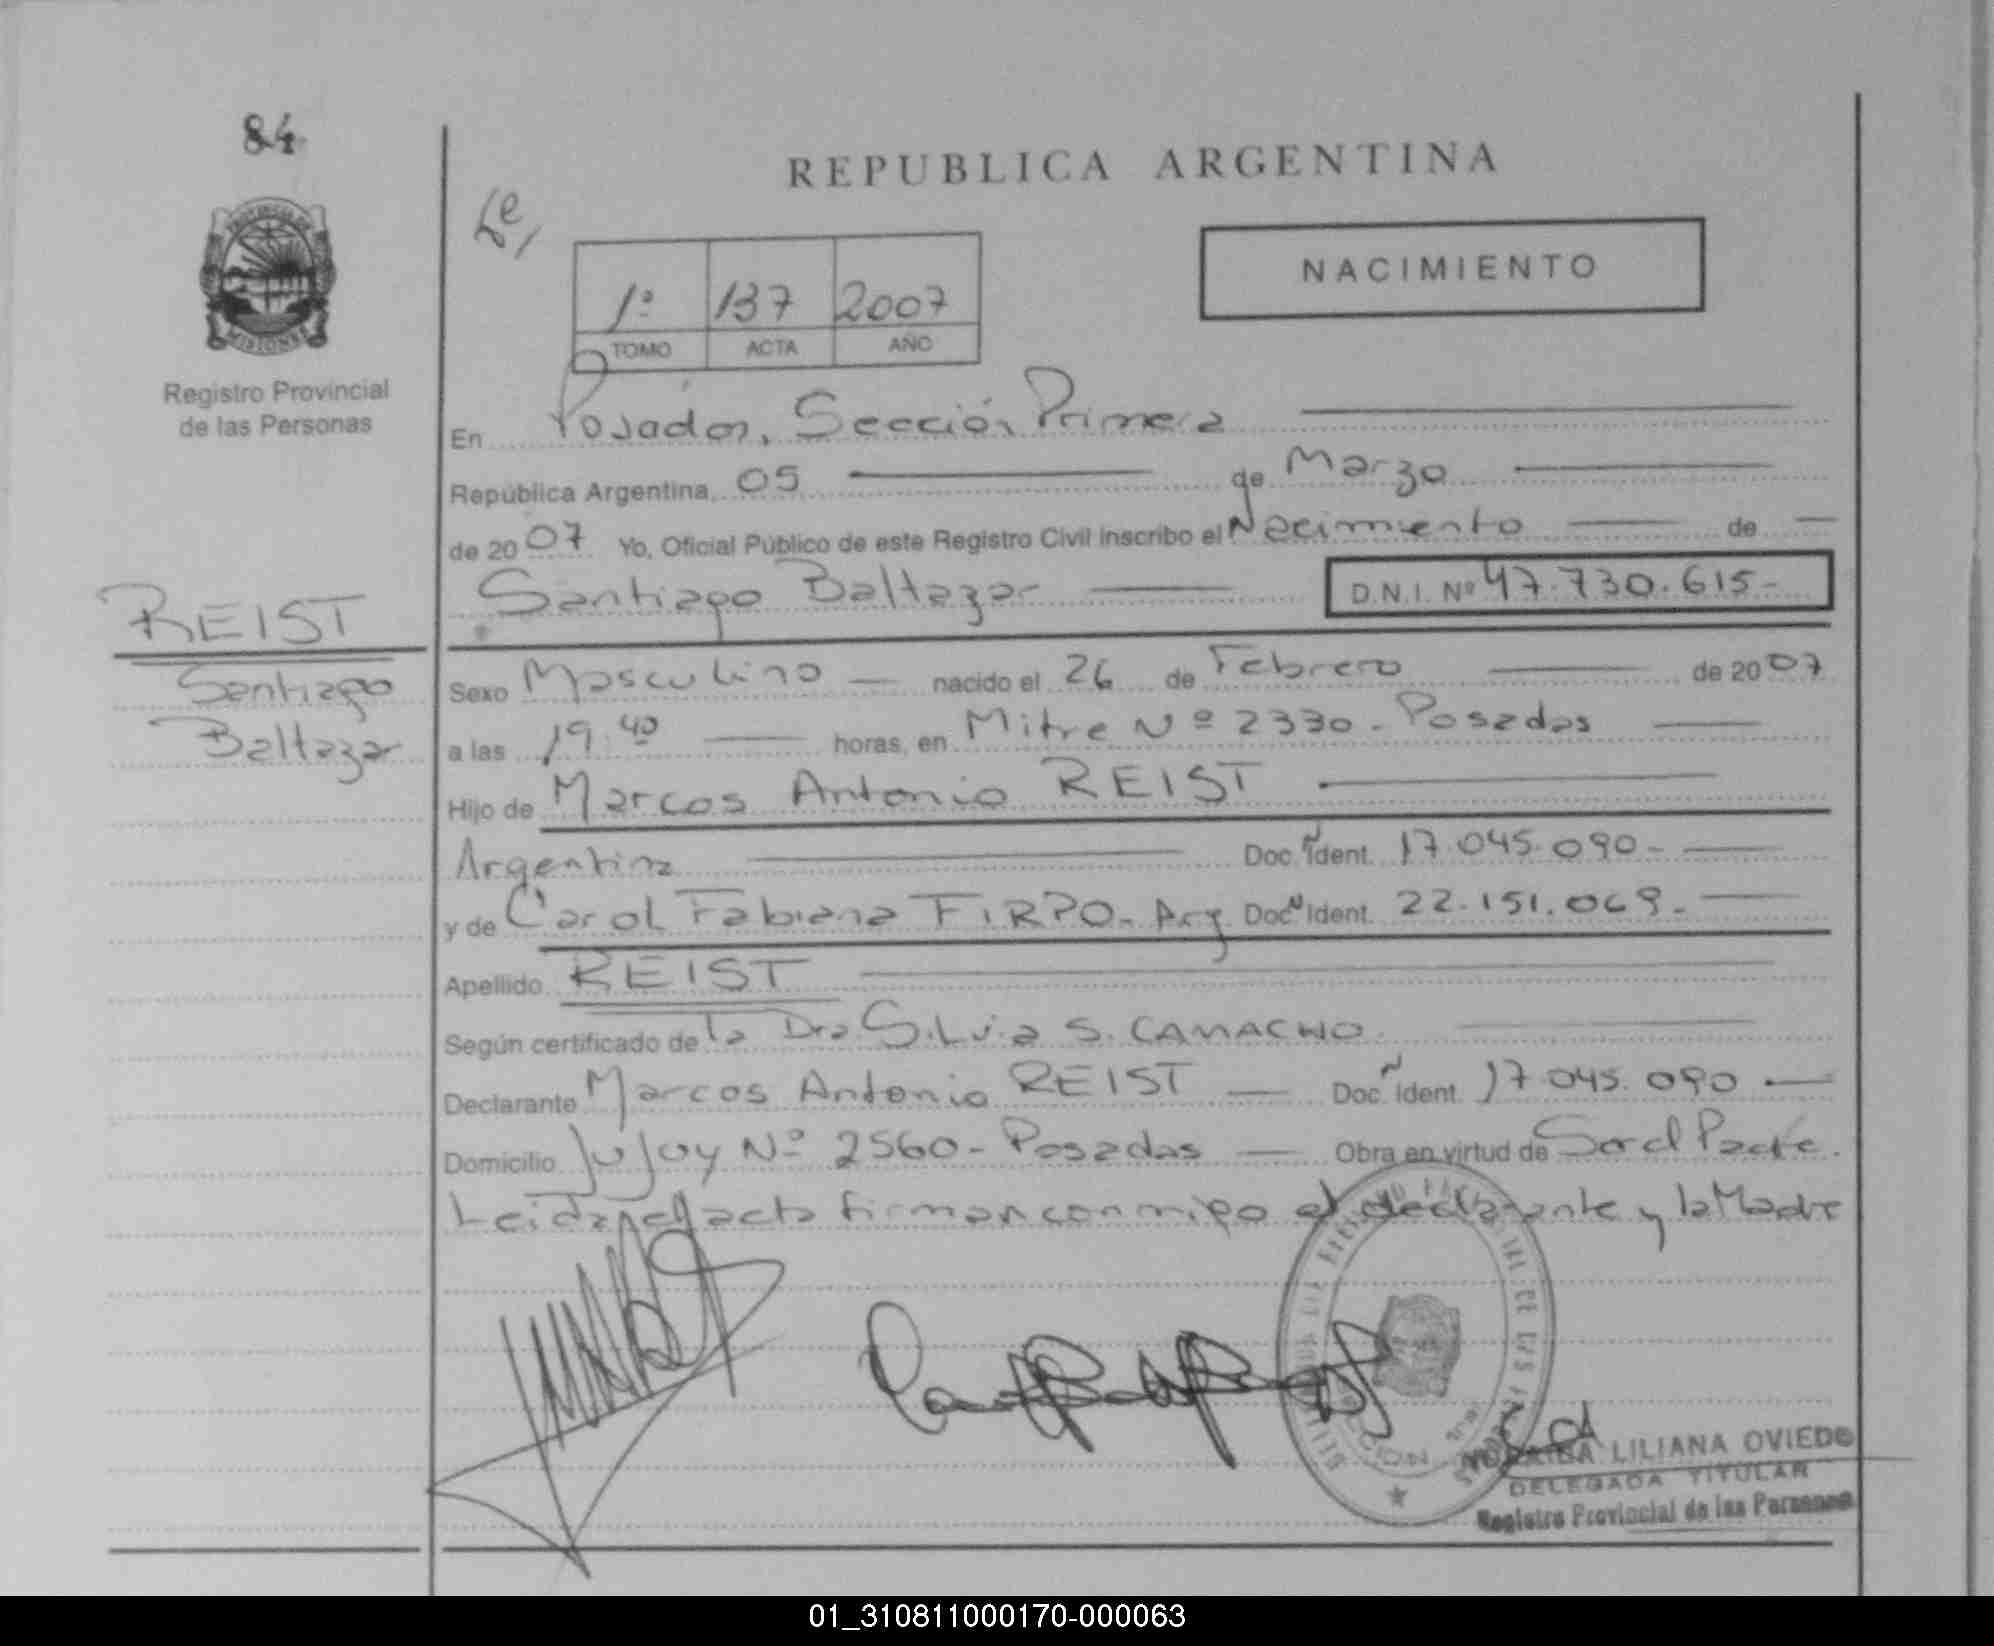 84
REPUBLICA ARGENTINA
NACIMIENTO
1º 137 2007
TOMO ACTA AÑO
PROVINCIA DE
MISIONES
Registro Provincial
de las Personas
En Posadas, Sección Primera
República Argentina, 05 de Marzo
de 2007 Yo, Oficial Público de este Registro Civil inscribo el Nacimiento de
Santiago Baltazar D.N.I. Nº 47.730.615-
REIST
Santiago
Baltazar
Sexo Masculino nacido el 26 de Febrero de 2007
a las 19.40 horas, en Mitre Nº 2330 - Posadas
Hijo de Marcos Antonio REIST
Argentina Doc. Ident. 17.045.090-
y de Carol Fabiana FIRPO - Arg. Doc. Ident. 22.151.069-
Apellido REIST
Según certificado de la Dra Silvia S. CAMACHO.
Declarante Marcos Antonio REIST Doc. Ident. 17.045.090
Domicilio Jujuy Nº 2560 - Posadas Obra en virtud de Ser el Padre.
Leida el acta firman conmigo el declarante y la Madre
LILIANA OVIEDO
DELEGADA TITULAR
Registro Provincial de las Personas
01_310811000170-000063